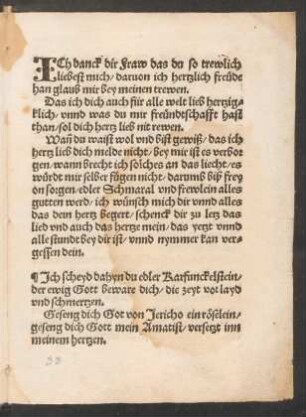 ICh danck dir Fraw das du so trewlich
liebest mich/ daruon ich hertzlich freüde
han glaub mir bey meinen trewen.
Das ich dich auch für alle welt lieb hertzig⸗
klich/ vnnd was du mir freündtschafft hast
than/ sol dich hertz lieb nit rewen.
Wañ du waist wol vnd bist gewiß/ das ich
hertz lieb dich melde nicht/ bey mir ist es verbor
gen/ wann brecht ich solches an das liecht/ es
würdt mir selber fügen nicht/ darumb biß frey
on sorgen/ edler Schmaral vnd frewlein alles
gutten werd/ ich wünsch mich dir vnnd alles
das dem hertz begert/ schenck dir zu letz das
lied vnd auch das hertze mein/ das yetzt vnnd
alle stundt bey dir ist/ vnnd nymmer kan ver⸗
gessen dein.
¶ Ich scheyd dahyn du edler Karfunckelstein/
der ewig Gott beware dich/ die zeyt vor layd
vnd schmertzen.
Geseng dich Got von Jericho ein röselein/
geseng dich Gott mein Amatist/ versetzt inn
meinem hertzen.
33